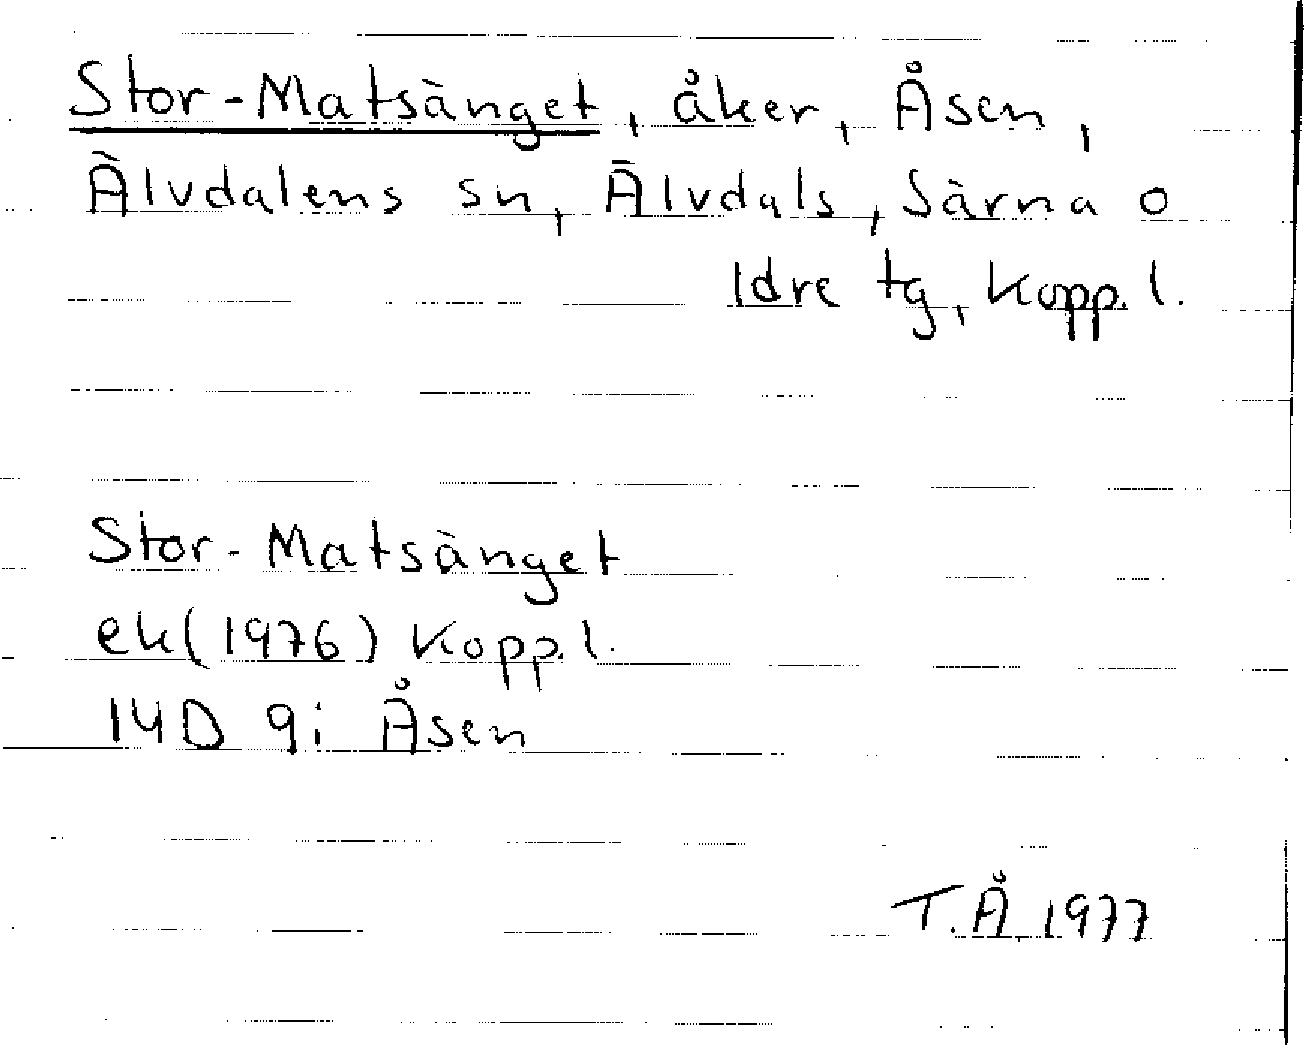 Stor-Matsänget, åker, Åsen,
Älvdalens sn, Älvdals, Särna o
Idre tg, Kopp. l.
Stor-Matsänget
ek(1976) Kopp. l.
14D 9i Åsen
T.Å. 1977